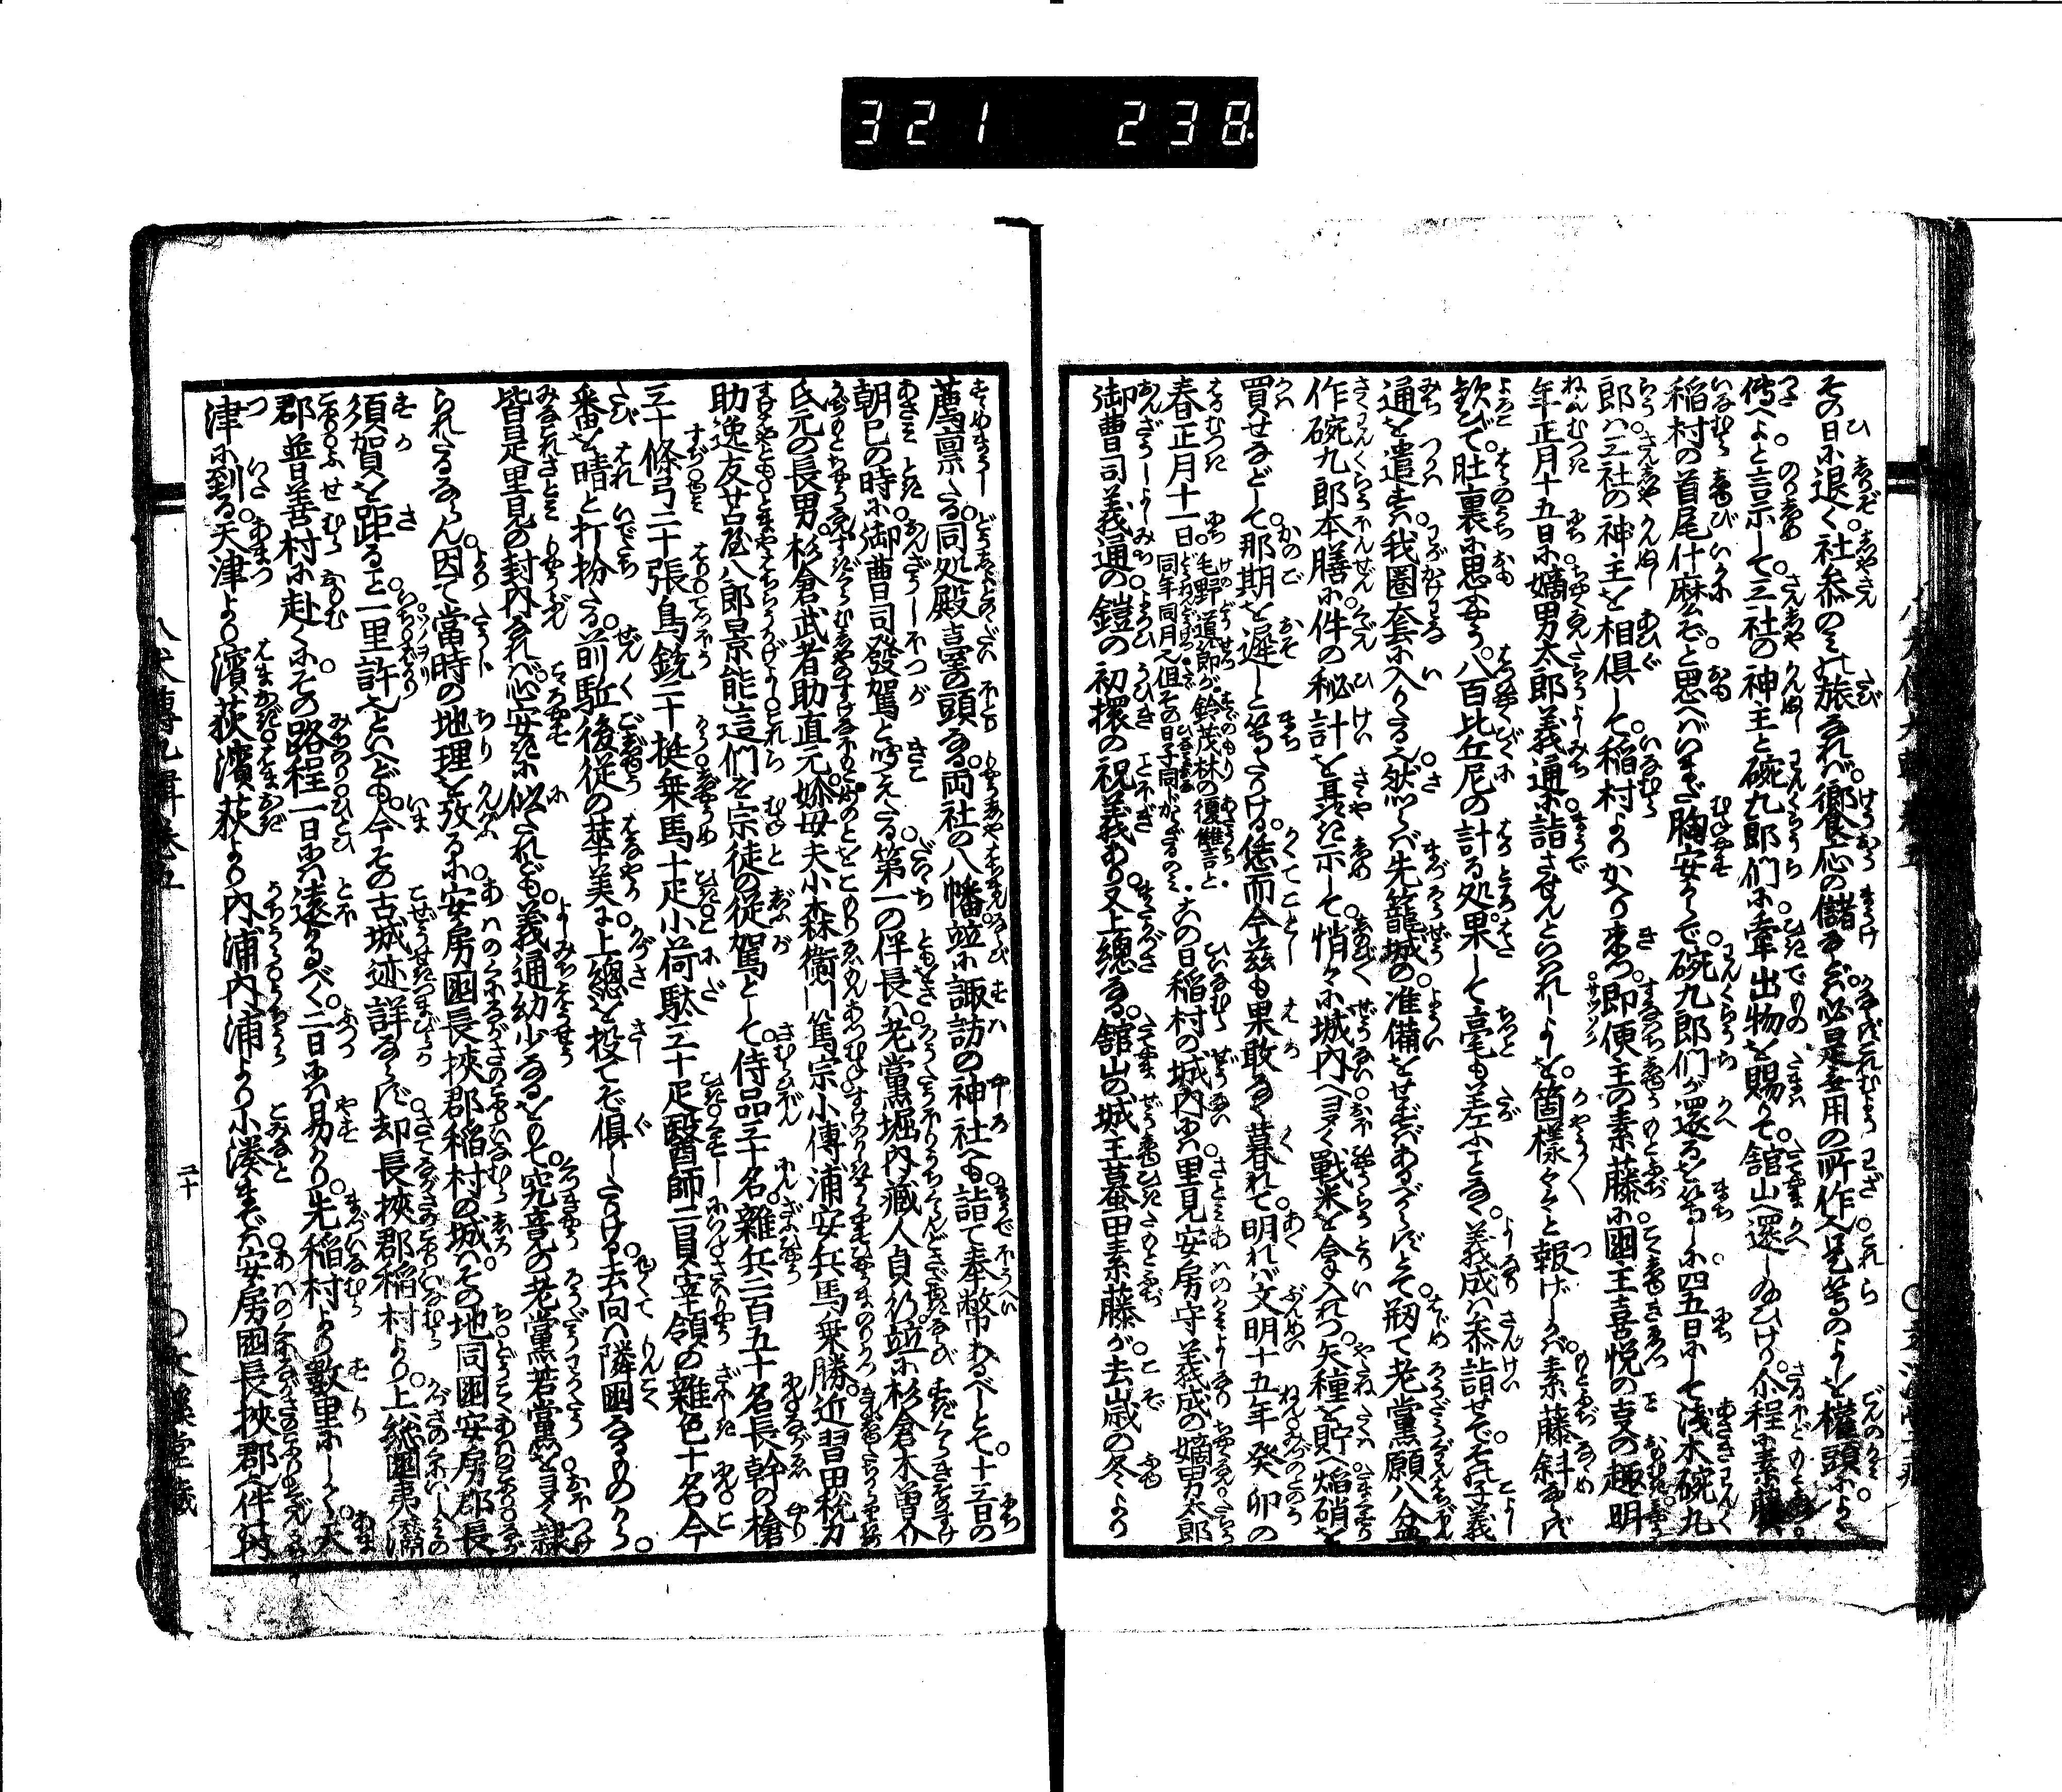 321 238.
その日に退く社参のミの旅なれバ饗應の儲などハ必是無用の所作ならん是等のよしを權頭によく
傳へよと言示して三社の神主と碗九郎們に牽出物を賜りて舘山へ還しゐひけり尒程に素藤ハ
稲村の首尾什麼ぞと思へバいまだ胸安からで碗九郎們が還るを等しに四五日にして浅木碗九
郎ハ三社の神主を相倶して稲村よりかへり来つ即便主の素藤に國主喜悦の亊の趣明
年正月十五日に嫡男太郎義通に詣させんといはれしよしを箇樣々々と報げしかバ素藤斜ならず
歓びて肚裏に思ふやう八百比丘尼の計る処果して毫も差ふことなく義成ハ参詣せでその子義
通を遣すハ我圏套に入りたる也然らバ先籠城の准備をせずバあるべからずとて軈て老黨願八盆
作碗九郎本膳に件の秘計を具に示して悄々に城内へ多く戰米を拿入れつ矢種を貯へ焔硝を
買せなどして那期を遅しと等たりける恁而今茲も果敢なく暮れて明れバ文明十五年癸卯の
春正月十一日毛野道節が鈴茂林の復讐言と同年同月也但その日子同じからざるのミこの日稲村の城内にハ里見安房守義成の嫡男太郎
御曹司義通の鎧の初擐の祝義あり又上總なる舘山の城主蟇田素藤が去歳の冬より
薦稟しゝる同処殿臺の頭なる両社の八幡竝に諏訪の神社へも詣て奉幣あるべしとて十三日の
朝巳の時に御曹司發駕と聞えたる第一の伴長ハ老黨堀内藏人貞行竝に杉倉木曽介
氏元の長男杉倉武者助直元婦母夫小森衞門篤宗小傳浦安兵馬乗勝近習田税力
助逸友苫屋八郎景能這們を宗徒の從駕として侍品三十名雜兵二百五十名長幹の槍
三十條弓二十張鳥銃二十挺乗馬十疋小荷駄三十疋醫師二員宰領の雜色十名今
番を晴と打扮たる前駈後從の華美に上總を投てぞ倶したりける去向ハ隣國なるものから
皆是里見の封内なれバ心安きに似たれども義通幼少なるをもて究竟の老黨若黨を多く隷
られたるならん因て當時の地理を攷るに安房國長挾郡稲村の城ハその地同國安房郡長
須賀を距ること一里許さといへども今その古城迹詳ならず却長挾郡稲村より上総國夷灊
郡普善村に赴くにその路程一日にハ遠かるべく二日にハ易かり先稲村より數里にして天
津に到る天津より濱荻濱荻より内浦内浦より小湊までハ安房國長挾郡也件の内
八犬傳九輯卷五
二十